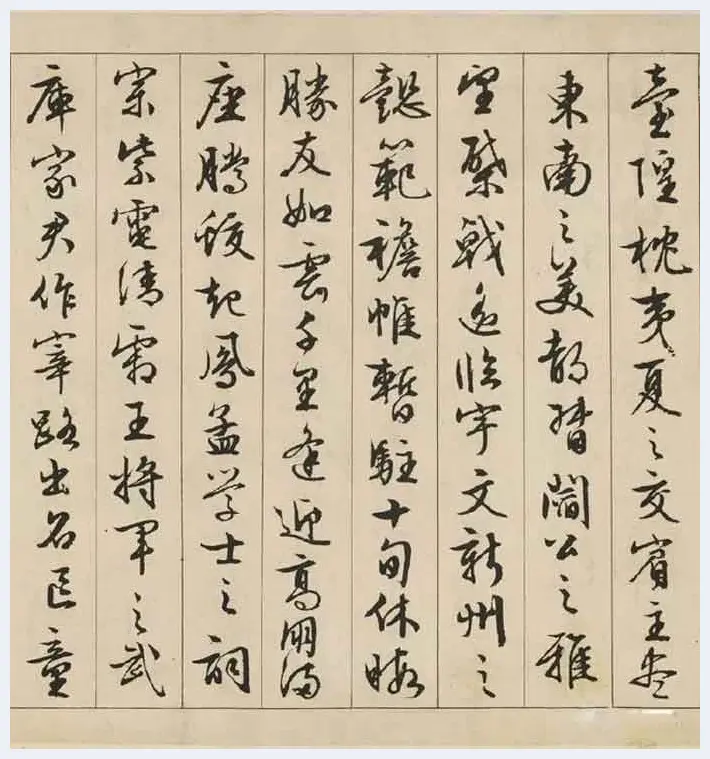 臺隍枕夷夏之交賓主盡
東南之美都督閻公之雅
望棨戟遙臨宇文新州之
懿範襜帷暫駐十旬休暇
勝友如雲千里逢迎高朋滿
座騰蛟起鳳孟學士之詞
宗紫電清霜王將軍之武
庫家君作宰路出名區童